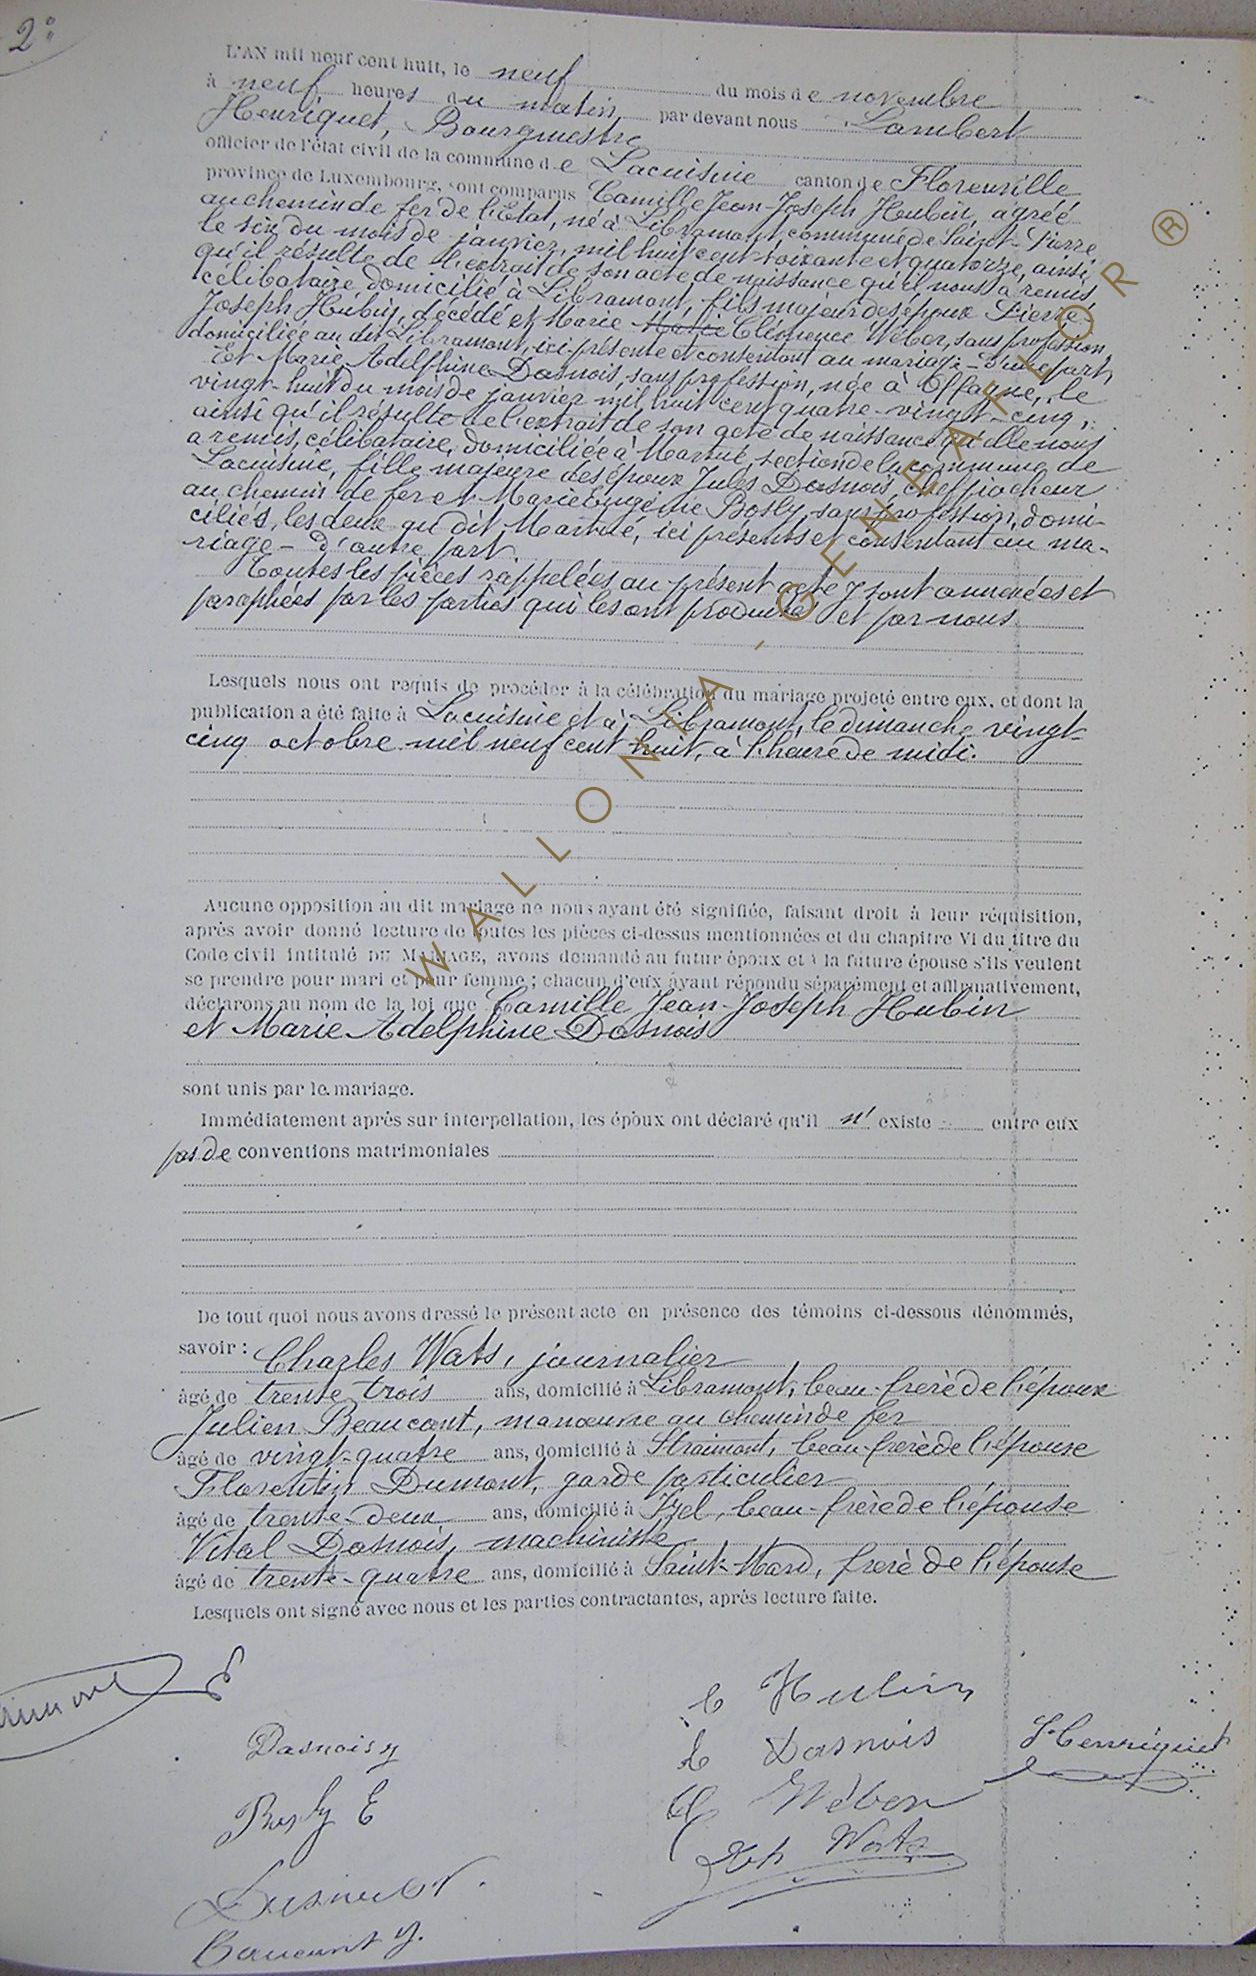 2°
L'AN mil neuf cent huit, le neuf du mois de novembre
à neuf heures du matin par devant nous Lambert
Henriquet, Bourgmestre
officier de l'état civil de la commune de Lacuisine canton de Florenville
province de Luxembourg, sont comparus Camille Jean-Joseph Hubin, agréé
au chemin de fer de l'Etat, né à Libramont, commune de Saint-Pierre,
le six du mois de janvier, mil huit cent soixante et quatorze, ainsi
qu'il résulte de l'extrait de son acte de naissance qu'il nous a remis,
célibataire, domicilié à Libramont, fils majeur des époux Pierre
Joseph Hubin, décédé et Marie Clémence Weber, sans profession,
domiciliée au dit Libramont, ici présente et consentant au mariage - D'une part,
Et Marie Adelphine Dasnois, sans profession, née à Offagne, le
vingt-huit du mois de janvier mil huit cent quatre-vingt-cinq,
ainsi qu'il résulte de l'extrait de son acte de naissance qu'elle nous
a remis, célibataire, domiciliée à Martué, section de la commune de
Lacuisine, fille majeure des époux Jules Dasnois, chef piocheur
au chemin de fer et Marie Eugénie Bosly, sans profession, domi-
ciliés, les deux au dit Martué, ici présents et consentant au ma-
riage - d'autre part.
Toutes les pièces rappelées au présent acte y sont annexées et
paraphées par les parties qui les ont produites et par nous.
Lesquels nous ont requis de procéder à la célébration du mariage projeté entre eux, et dont la
publication a été faite à Lacuisine et à Libramont, le dimanche vingt-
cinq octobre mil neuf cent huit, à l'heure de midi.
Aucune opposition au dit mariage ne nous ayant été signifiée, faisant droit à leur réquisition,
après avoir donné lecture de toutes les pièces ci-dessus mentionnées et du chapitre VI du titre du
Code civil intitulé DU MARIAGE, avons demandé au futur époux et à la future épouse s'ils veulent
se prendre pour mari et pour femme ; chacun d'eux ayant répondu séparément et affirmativement,
déclarons au nom de la loi que Camille Jean-Joseph Hubin
et Marie Adelphine Dasnois
sont unis par le mariage.
Immédiatement après sur interpellation, les époux ont déclaré qu'il n' existe entre eux
pas de conventions matrimoniales
De tout quoi nous avons dressé le présent acte en présence des témoins ci-dessous dénommés,
savoir : Charles Wats, journalier
âgé de trente trois ans, domicilié à Libramont, beau-frère de l'époux
Julien Beaucant, manœuvre au chemin de fer
âgé de vingt-quatre ans, domicilié à Straimont, beau-frère de l'épouse
Florentin Dumont, garde particulier
âgé de trente-deux ans, domicilié à Izel, beau-frère de l'épouse
Vital Dasnois, machiniste
âgé de trente-quatre ans, domicilié à Saint-Mard, frère de l'épouse
Lesquels ont signé avec nous et les parties contractantes, après lecture faite.
C Hubin
Dasnois
Dasnois
L Henriquet
Weber
Bosly E
Ch Wats
Beaucant J.
WALLONIA-GENEAFLOR ®